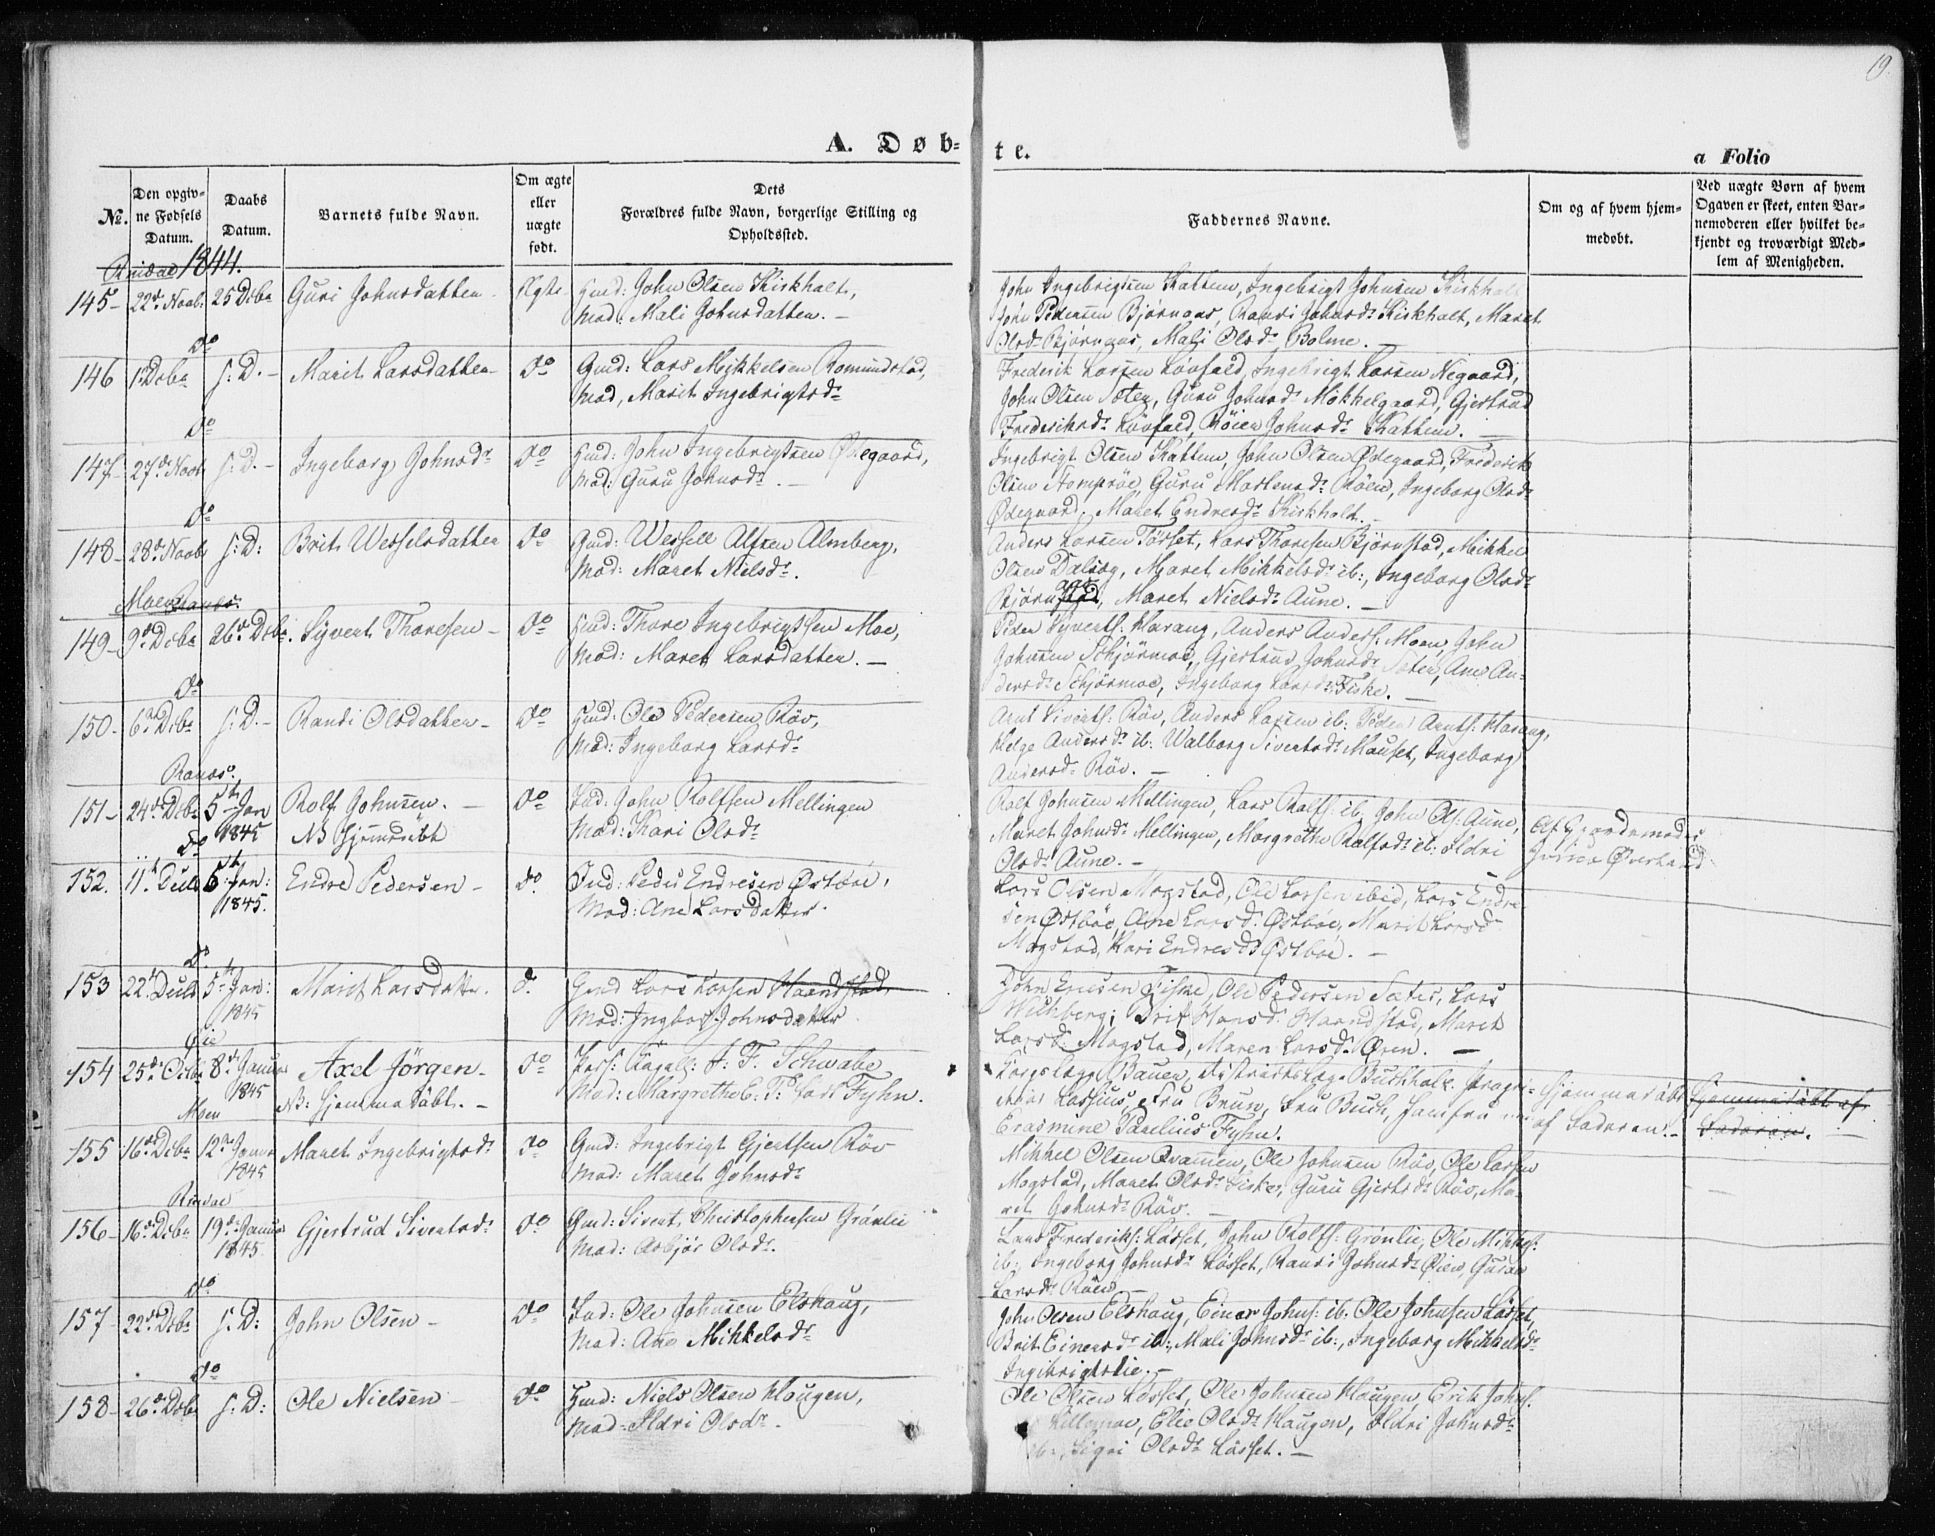 19.
A. Døb-
te.
a Folio
№.
Den opgiv-
ne Fødsels
Datum.
Daabs
Datum.
Barnets fulde Navn.
Om ægte
eller
uægte
født.
Dets
Forældres fulde Navn, borgerlige Stilling og
Opholdssted.
Faddernes Navne.
Om og af hvem hjem-
medøbt.
Ved uægte Børn af hvem
Opgaven er skeet, enten Bar-
nemoderen eller hvilket be-
kjendt og troværdigt Med-
lem af Menigheden.
Rindal 1844.
145 - 22de Novb: 25 Dcbr Guri Johnsdatter. Ægte. Gmd: John Olsen Kirkholt,
Mod: Mali Johnsdatter. -
John Ingebrigtsen Kattem, Ingebrigt Johnsen Kirkholt
John Pedersen Bjørnaas, Randi Johnsdr Kirkholt, Maret
Olsdr Bjørnaas, Mali Olsdr Bolme. -
do
146 1 Dcbr s: D. - Marit Larsdatter - do Gmd: Lars Mikkelsen Romundstad,
Mod, Marit Ingebrigtsdr
Frederik Larsen Løvfald, Ingebrigt Larsen Negaard,
John Olsen Sæter, Guru Johnsdr Mikkelgaard, Gjertrud
Frederiksdr Løvfald, Johnsdr Kattem. -
do
147 - 27de Novb s: D. - Ingeborg Johnsdr do Gmd: John Ingebrigtsen Ødegaard,
Mod: Guru Johnsdr. -
Ingebrigt Olsen Kattem, John Olsen Ødegaard, Frederik
Olsen Guru Mortensdr Røen, Ingeborg Olsdr
Ødegaard, Maret Endresdr Kirkholt. -
do
148 - 28de Novb s: D: Brit Wesselsdatter do Gmd: Wessel Almberg,
Mod: Maret Nielsdr.
Anders Larsen Tørset, Lars Thoresen Bjørnstad, Mikkel
Olsen Dalsæg, Maret Mikkelsdr ib:, Ingeborg Olsdr
Maret Nielsdr Aune. -
Moe Ranæs.
149 - 9de Dcbr 26de Dcbr. Syvert Thoresen - do Gmd: Thore Ingebrigtsen Moe,
Mod: Maret Larsdatter. -
Peder Syverts: Harang, Anders Anders: Moen, John
Johnsen Schjørmoe, Gjertrud Johnsdr Sæter, Ane An-
dersdr Schjørmoe, Ingeborg Larsdr Fiske. -
do
150 - 6te Dcbr s: D. - Randi Olsdatter - do Gmd: Ole Pedersen Røv,
Mod: Ingeborg Larsdr
Arnt Siverts: Røv, Anders Larsen ib: Peder Arnts: Harang,
Helge Andersdr ib: Walborg Sivertsdr Mauset, Ingeborg
Andersdr Røv. -
Ranæs.
151 - 24de Dcbr 5te Jan 1845 Rolf Johnsen. - do Ind: John Rolfsen Mellingen
NB Hjemdøbt Mod: Kari Olsdr
Rolf Johnsen Mellingen, Lars Rolfs: ib, John Ols: Aune,
Maret Johnsdr Mellingen, Margrethe Rolfsdr ib: Ildri
Olsdr Aune. -
Af Gjordemoder
do
152. 11te Decb 5te Jan: 1845. Endre Pedersen - do. Ind: Peder Endresen Østbøe,
Mod: Ane Larsdatter.
Lars Olsen Mogstad, Ole Larsen ibid, Lars Endre-
sen Østbøe, Ane Larsd. Østbøe, Marit Larsd.
Mogstad, Kari Endresd: Østbøe. -
do
153 22de Decb 5te Jan: 1845 Marit Larsdatter. d. Gmd Lars Larsen Haandstad,
Mod: Ingbor: Johnsdatter.
John Ericsen Fiske, Ole Pedersen Sæter, Lars
Wilhberg; Brit Hansd: Haandstad, Maret
Larsd: Mogstad, Maren Larsdr Øren. -
Øie
154 25de Octbr 8de Januar 1845 Axel Jörgen - do J. F. Schwabe
NB: Hjemmedöbt. - Mod: Margrethe E. P. Fyhn.
Korpslæge Bauer, Distriktslæge Buckholt
Fru Brun, Fru Buch, Jomfru
Erasmine Parelius Fyhn.
Hjemmedöbt
af Faderen. -
Hjemmedöbt af
Faderen. -
Moen
155 16de Dcbr 12te Januar 1845 Maret Ingebrigtsdr do Gmd: Ingebrigt Gjertsen Røv
Mod: Maret Johnsdr
Mikkel Olsen Qvammen, Ole Johnsen Røv, Ole Larsen
Mogstad, Maret Olsdr Fiske, Guru Gjertsdr Røv, Ma-
ret Johnsdr Røv. -
Rindal
156 - 16de Dcbr 19de Januar 1845. Gjertrud Sivertsdr do Gmd: Sivert Christophersen Grønlie
Mod: Asbjør Olsdr.
Lars Frederiks: Løsset, John Rolfs: Grønlie, Ole Mikkels:
ib:, Ingeborg Johnsdr Løsset, Randi Johnsdr Øien, Guru
Larsdr Røen. -
do
157 - 22de Dcbr s: D: John Olsen - do Ind: Ole Johnsen Elshaug,
Mod: Ane Mikkelsdr
John Olsen Elshaug, Einar Johns: ib: Ole Johnsen Løsset,
Brit Einarsdr ib:, Mali Johnsdr ib:, Ingeborg Mikkelsdr
Ingebrigtslie. -
do
158 - 26de Dcbr s: D: Ole Nielsen - do Gmd: Niels Olsen Haugen,
Mod: Ildri Olsdr. -
Ole Olsen Løsset, Ole Johnsen Haugen, Erik Johns:
Lillemoe, Elie Olsdr Haugen, Ildri Johnsdr
ib:, Sigri Olsdr Løsset. -